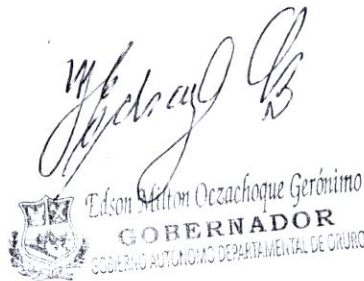 Edson Milton Oczachoque Gerónimo
GOBERNADOR
GOBIERNO AUTÓNOMO DEPARTAMENTAL DE ORURO